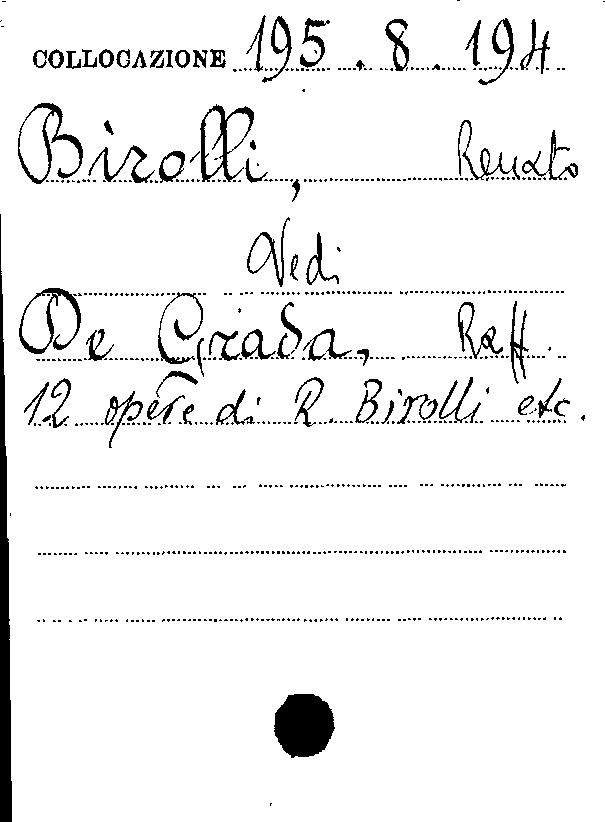 COLLOCAZIONE 195.8.194
Birolli, Renato
Vedi
De Grada, Raff.
12 opere di R. Birolli etc.